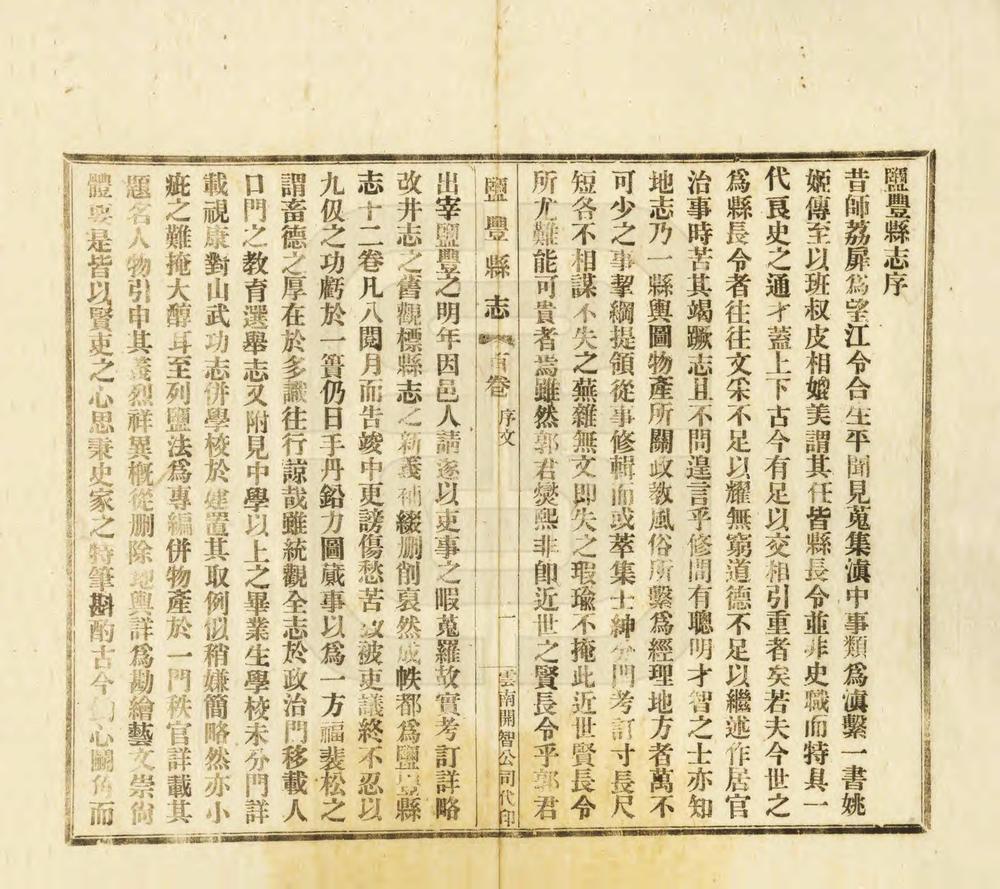 鹽豐縣志序
昔師荔扉爲望江令合生平聞見蒐集滇中事類爲滇繫一書姚
姬傳至以班叔皮相嬡美謂其任皆縣長令並非史職而特具一
代良史之通才蓋上下古今有足以交相引重者矣若夫今世之
爲縣長令者往往文采不足以耀無窮道德不足以繼述作居官
治事時苦其竭蹶志且不問遑言乎修間有聰明才智之士亦知
地志乃一縣輿圖物產所關政敎風俗所繫爲經理地方者萬不
可少之事挈綱提領從事修輯而或萃集士紳分門考訂寸長尺
短各不相謀不失之蕪雜無文即失之瑕瑜不掩此近世賢長令
所尤難能可貴者焉雖然郭君燮熙非卽近世之賢長令乎郭君
鹽豐縣志 首卷 序文 一 雲南開智公司代印
出宰鹽豐之明年因邑人請遂以吏事之暇蒐羅故實考訂詳略
改井志之舊觀標縣志之新義補綴刪削裒然成帙都爲鹽豐縣
志十二卷凡八閱月而告竣中更謗傷愁苦被吏議終不忍以
九仭之功虧於一簣仍日手丹鉛力圖蕆事以爲一方福裴松之
謂畜德之厚在於多識往行諒哉雖統觀全志於政治門移載人
口門之敎育選舉志又附見中學以上之畢業生學校未分門詳
載視康對山武功志併學校於建置其取例似稍嫌簡略然亦小
疵之難掩大醇耳至列鹽法爲專編併物產於一門秩官詳載其
題名人物引申其義烈祥異槪從刪除地輿詳爲勘繪藝文崇尙
體要是皆以賢吏之心思秉史家之特筆斟酌古今心鬭角而